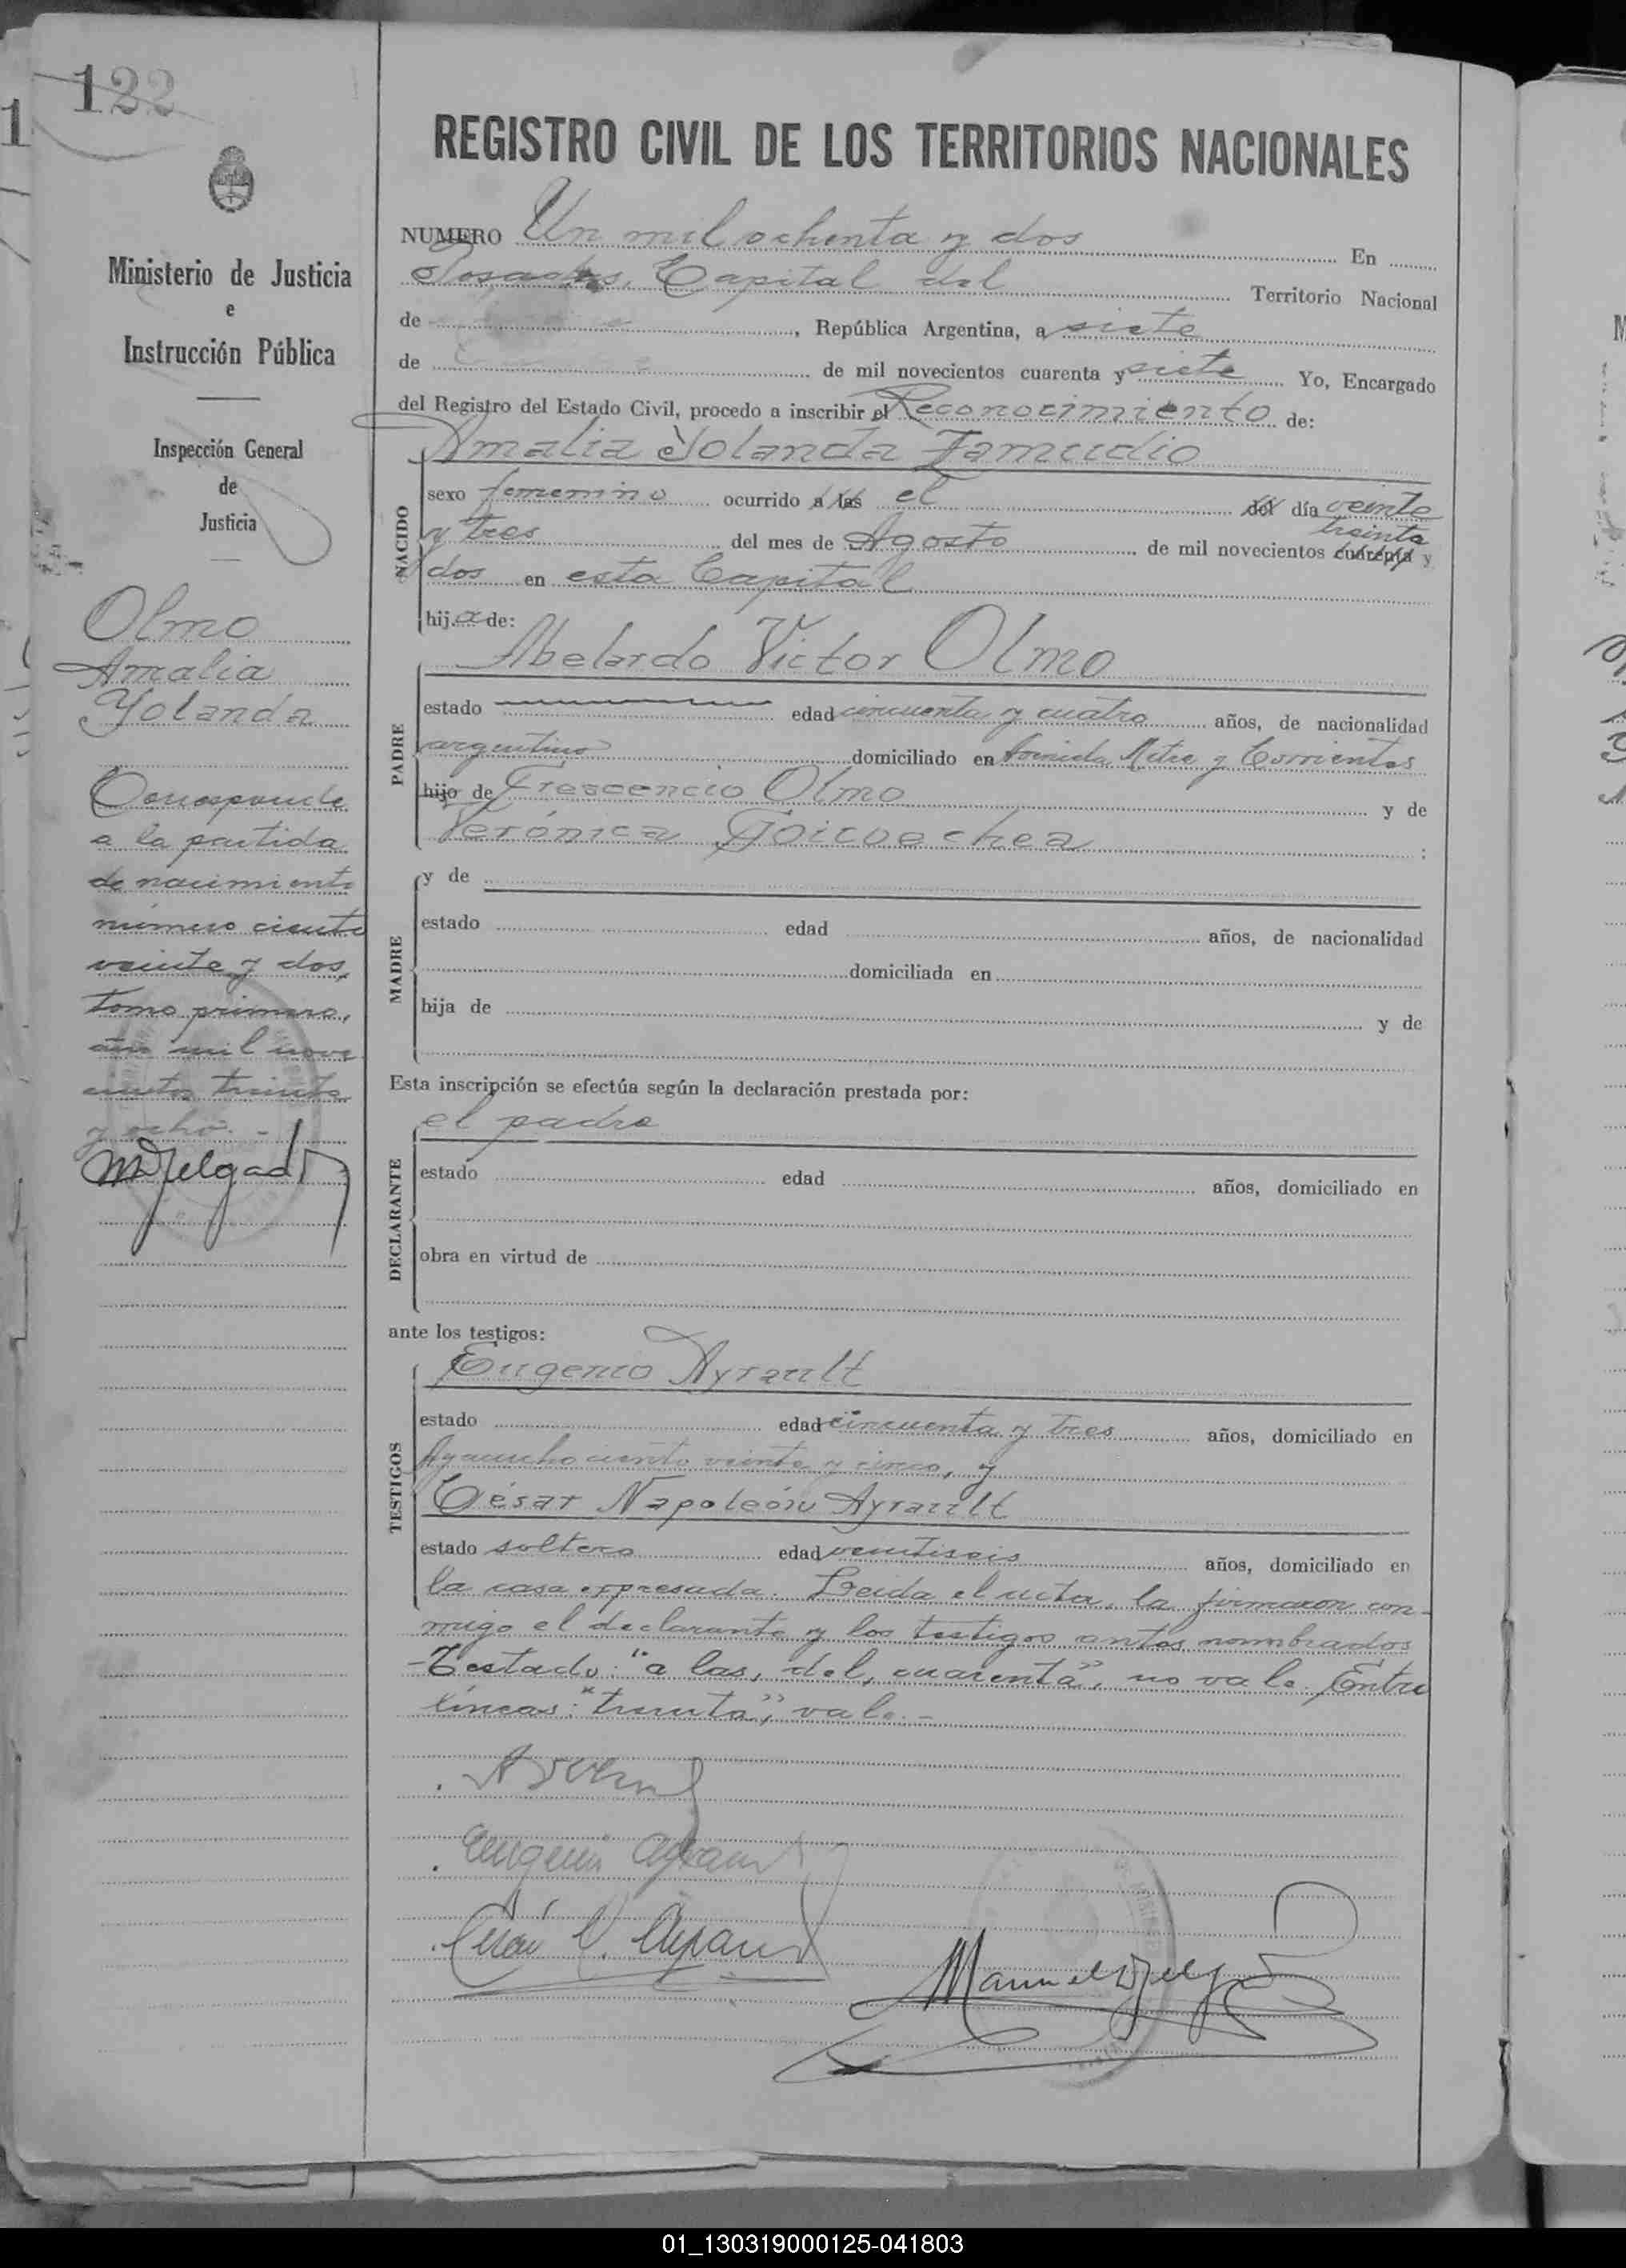 122
1
Ministerio de Justicia
e
Instrucción Pública
Inspección General
de
Justicia
Olmo
Amalia
Yolanda
Corresponde
a la partida
de nacimiento
número ciento
veinte y dos,
tomo primero,
año mil nove
cientos treinta
y ocho. -
MDelgado
REGISTRO CIVIL DE LOS TERRITORIOS NACIONALES
NUMERO Un mil ochenta y dos En
Posadas, Capital del Territorio Nacional
de , República Argentina, a siete
de de mil novecientos cuarenta y siete Yo, Encargado
del Registro del Estado Civil, procedo a inscribir el Reconocimiento de:
Amalia Yolanda Zamudio
NACIDO
sexo femenino ocurrido a las el del día veinte
treinta
y tres del mes de Agosto de mil novecientos cuarenta y
dos en esta Capital
hija de:
Abelardo Victor Olmo
PADRE
estado edad cincuenta y cuatro años, de nacionalidad
argentino domiciliado en Avenida Mitre y Corrientes
hijo de Crescencio Olmo y de
Verónica Goicoechea ;
MADRE
y de
estado edad años, de nacionalidad
domiciliada en
hija de y de
Esta inscripción se efectúa según la declaración prestada por:
el padre
DECLARANTE
estado edad años, domiciliado en
obra en virtud de
ante los testigos:
Eugenio Ayrault
TESTIGOS
estado edad cincuenta y tres años, domiciliado en
Ayacucho ciento veinte y cinco, y
César Napoleón Ayrault
estado soltero edad veintiseis años, domiciliado en
la casa expresada. Leida el acta, la firmaron con-
migo el declarante y los testigos antes nombrados
-Testado: "a las, del, cuarenta", no vale. Entre
líneas: "treinta", vale.-
Eugenio Ayrault
César N. Ayrault
Manuel Delgado
01_130319000125-041803